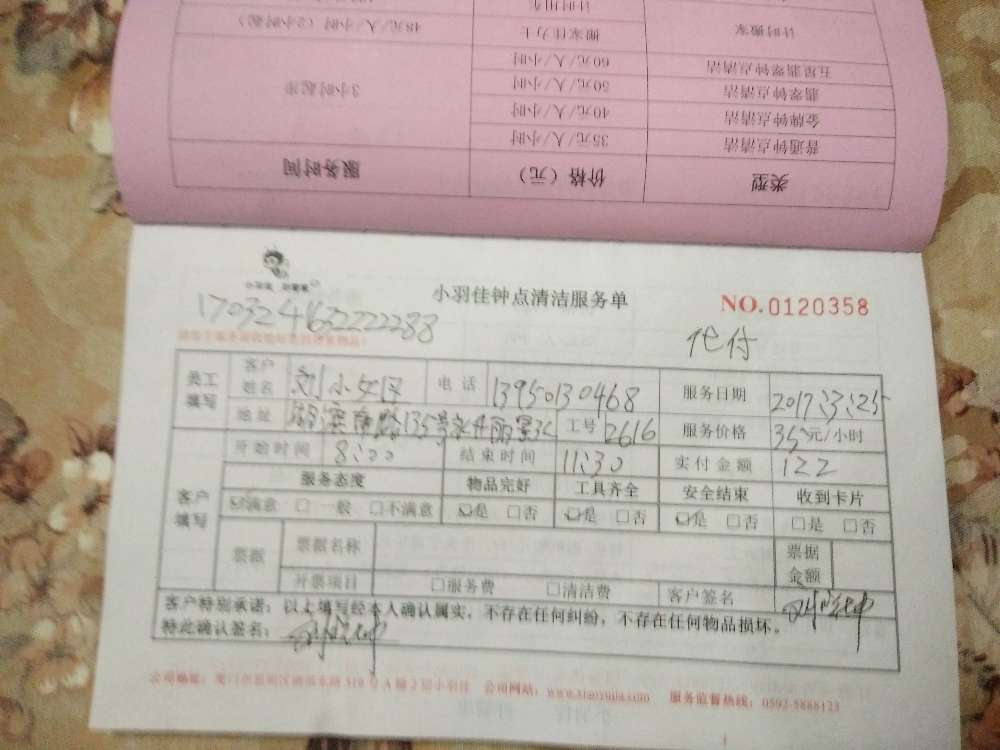 计时用车
计时搬家 搬家佳力士 48元/人/小时（2小时起）
五星翡翠钟点清洁 60元/人/小时
翡翠钟点清洁 50元/人/小时 3小时起步
金牌钟点清洁 40元/人/小时
普通钟点清洁 35元/人/小时
类型 价格（元） 服务时间
小羽佳钟点清洁服务单 NO.0120358
代付
员工填写 客户姓名 刘小女士 电话 13950130468 服务日期 2017.3.25
地址 湖滨南路135号 工号 2616 服务价格 35元/小时
客户填写 开始时间 8:00 结束时间 11:30 实付金额 122
服务态度 物品完好 工具齐全 安全结束 收到卡片
☑满意 □一般 □不满意 ☑是 □否 ☑是 □否 ☑是 □否 □是 □否
票据 票据名称 票据金额
开票项目 □服务费 □清洁费 客户签名
客户特别承诺：以上填写经本人确认属实，不存在任何纠纷，不存在任何物品损坏。
特此确认签名：
公司网站：www.xiaoyujia.com 服务监督热线：0592-5888123